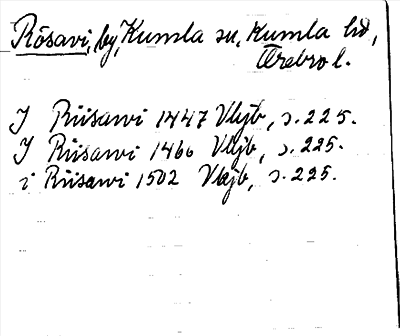 Rösavi, by, Kumla sn, Kumla hd,
Örebro l.
I Riisawi 1447 Vljb, s. 225.
I Riisawi 1466 Vljb, s. 225.
i Riisawi 1502 Vljb, s. 225.